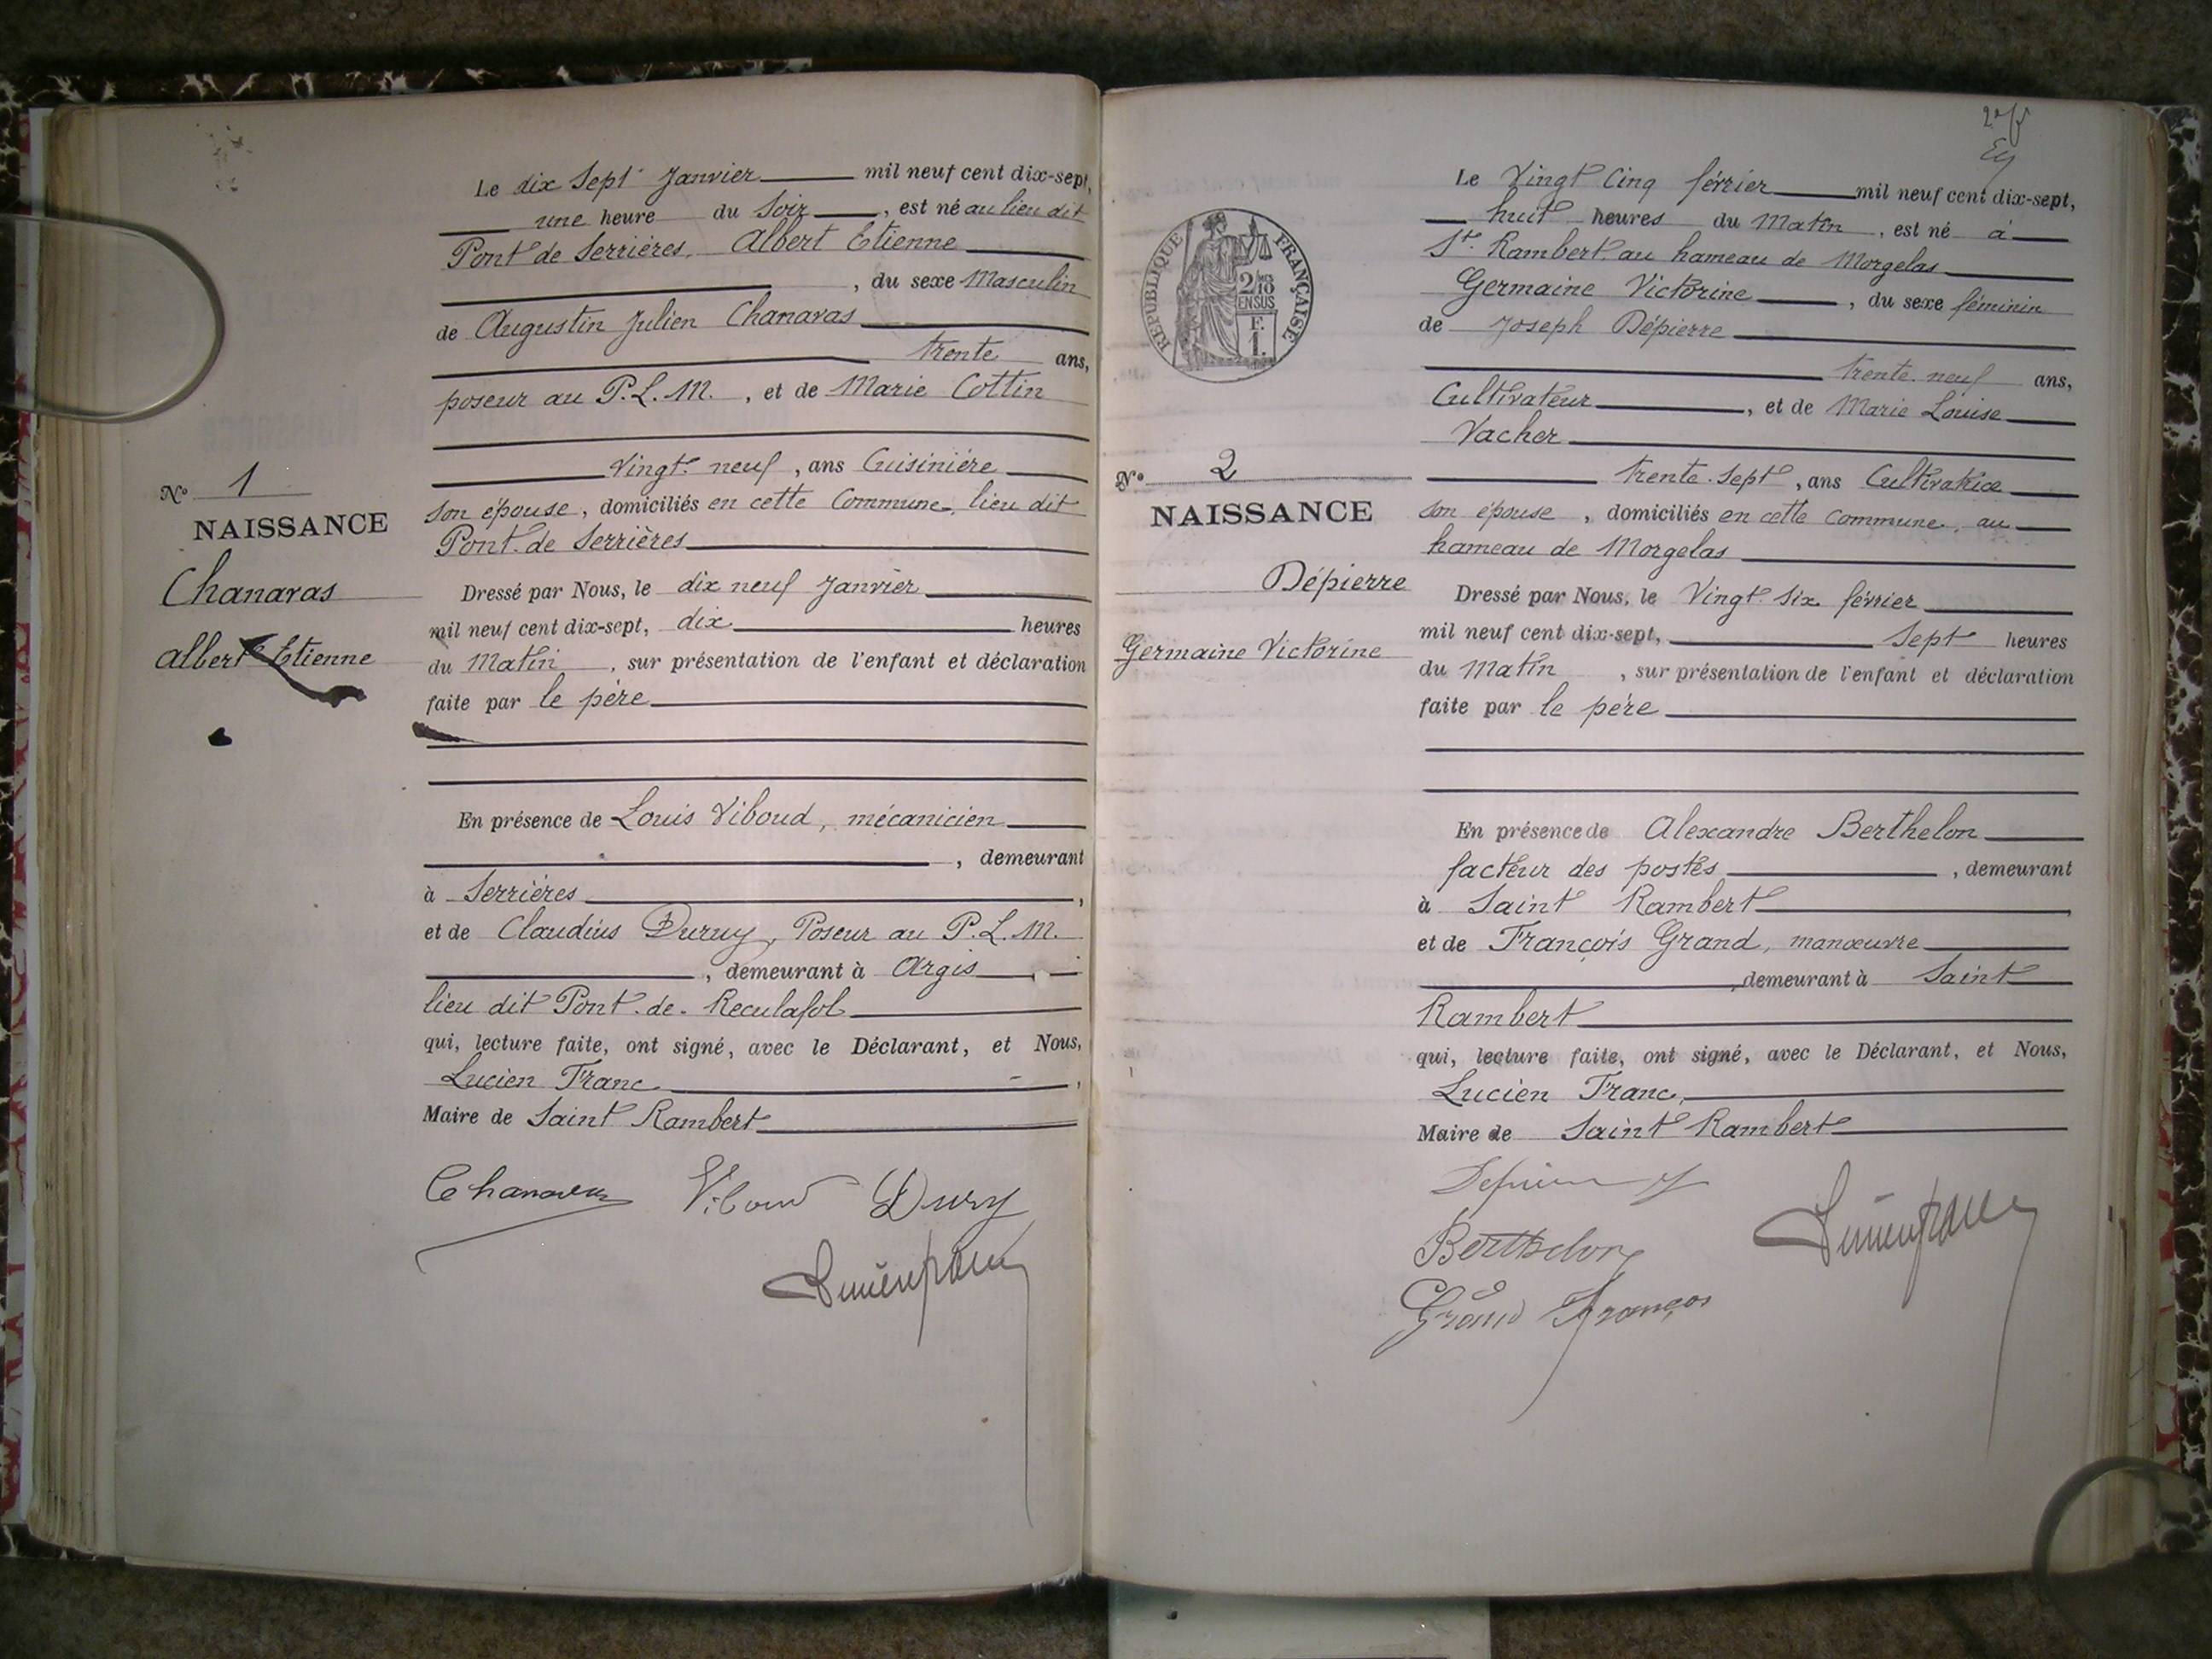 Le dix Sept Janvier mil neuf cent dix-sept,
une heure du Soir, est né au lieu dit
Pont de Serrières, Albert Etienne
, du sexe Masculin
de Augustin Julien Chanavas
trente ans,
poseur au P.L.M., et de Marie Cottin
Vingt neuf, ans Cuisinière
son épouse, domiciliés en cette Commune, lieu dit
Pont de Serrières
Dressé par Nous, le dix neuf Janvier
mil neuf cent dix-sept, dix heures
du Matin, sur présentation de l'enfant et déclaration
faite par le père
En présence de Louis Viboud, mécanicien
, demeurant
à Serrières,
et de Claudius Duruy, Poseur au P.L.M.
, demeurant à Argis
lieu dit Pont-de-Reculafol
qui, lecture faite, ont signé, avec le Déclarant, et Nous,
Lucien Franc,
Maire de Saint Rambert
Chanavas Viboud Dury
Nº 1
NAISSANCE
Chanavas
Albert Etienne
Le Vingt Cinq février mil neuf cent dix-sept,
huit heures du Matin, est né à
St. Rambert au hameau de Morgelas
Germaine Victorine, du sexe féminin
de Joseph Dépierre
trente neuf ans,
Cultivateur, et de Marie Louise
Vacher
trente Sept, ans Cultivatrice
son épouse, domiciliés en cette Commune, au
hameau de Morgelas
Dressé par Nous, le Vingt Six février
mil neuf cent dix-sept, Sept heures
du Matin, sur présentation de l'enfant et déclaration
faite par le père
En présence de Alexandre Berthelon
facteur des postes, demeurant
à Saint Rambert
et de François Grand, manœuvre
, demeurant à Saint
Rambert
qui, lecture faite, ont signé, avec le Déclarant, et Nous,
Lucien Franc,
Maire de Saint Rambert
Berthelon
Grand François
RÉPUBLIQUE FRANÇAISE
2/10
EN SUS
F.
1.
Nº 2
NAISSANCE
Dépierre
Germaine Victorine